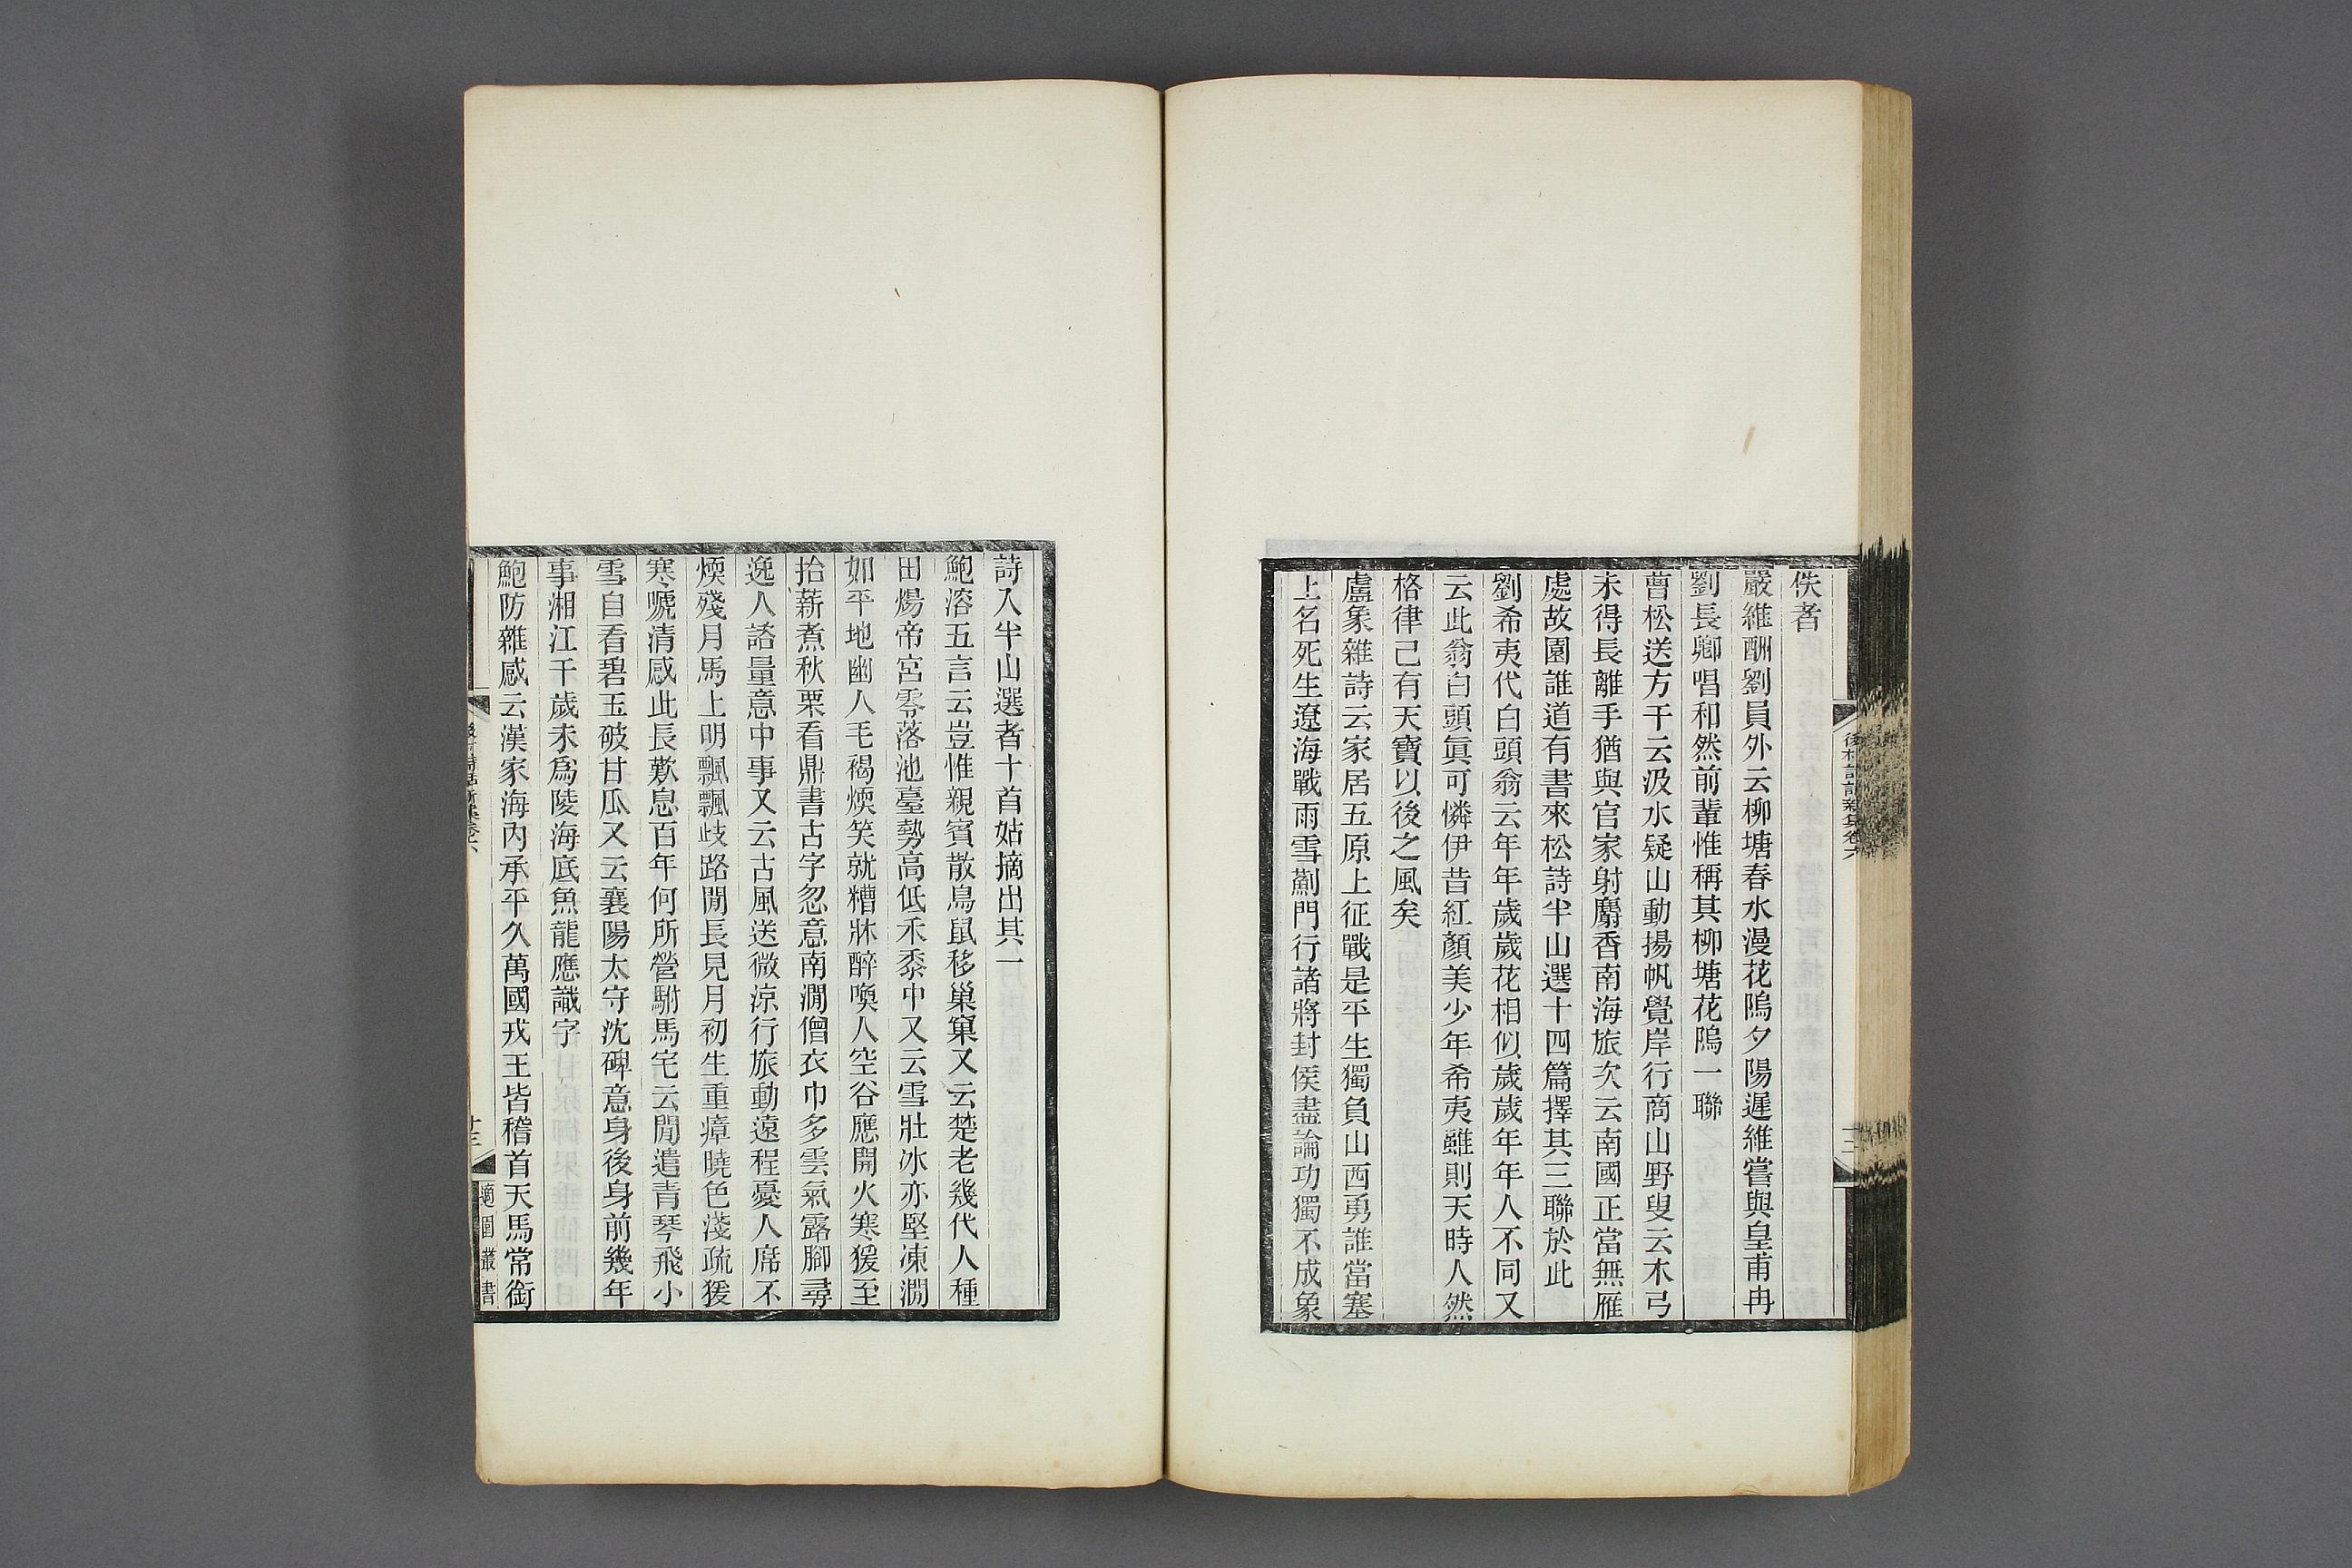 佚者
嚴維酬劉員外云柳塘春水漫花隖夕陽遲維嘗與皇甫冉
劉長卿唱和然前輩惟稱其柳塘花隖一聯
曹松送方干云汲水疑山動揚帆覺岸行商山野叟云木弓
未得長離手猶與官家射麝香南海旅次云南國正當無雁
處故園誰道有書來松詩半山選十四篇擇其三聯於此
劉希夷代白頭翁云年年歲歲花相似歲歲年年人不同又
云此翁白頭眞可憐伊昔紅顏美少年希夷雖則天時人然
格律已有天寶以後之風矣
盧象雜詩云家居五原上征戰是平生獨負山西勇誰當塞
上名死生遼海戰雨雪薊門行諸將封侯盡論功獨不成象
後村詩話新集卷六
十二
詩入半山選者十首姑摘出其一
鮑溶五言云豈惟親賓散鳥鼠移巢窠又云楚老幾代人種
田煬帝宮零落池臺勢高低禾黍中又云雪壯冰亦堅凍澗
如平地幽人毛褐煖笑就糟牀醉喚人空谷應開火寒猨至
拾薪煮秋栗看鼎書古字忽意南澗僧衣巾多雲氣露腳尋
逸人諮量意中事又云古風送微涼行旅動遠程憂人席不
煖殘月馬上明飄飄歧路閒長見月初生重瘴曉色淺疏猨
寒嗁清感此長歎息百年何所營駙馬宅云閒遣青琴飛小
雪自看碧玉破甘瓜又云襄陽太守沈碑意身後身前幾年
事湘江千歲未爲陵海底魚龍應識字
鮑防雜感云漢家海內承平久萬國戎王皆稽首天馬常銜
後村詩話新集卷六
十三
適園叢書